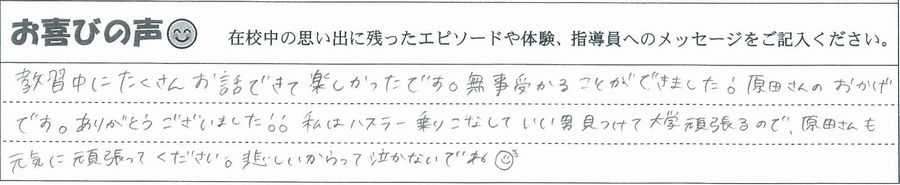 お喜びの声 在校中の思い出に残ったエピソードや体験、指導員へのメッセージをご記入ください。
教習中にたくさんお話できて楽しかったです。無事受かることができました!原田さんのおかげ
です。ありがとうございました!!私はハスラー乗りこなしていい男見つけて大学頑張るので、原田さんも
元気に頑張ってください。悲しいからって泣かないでね